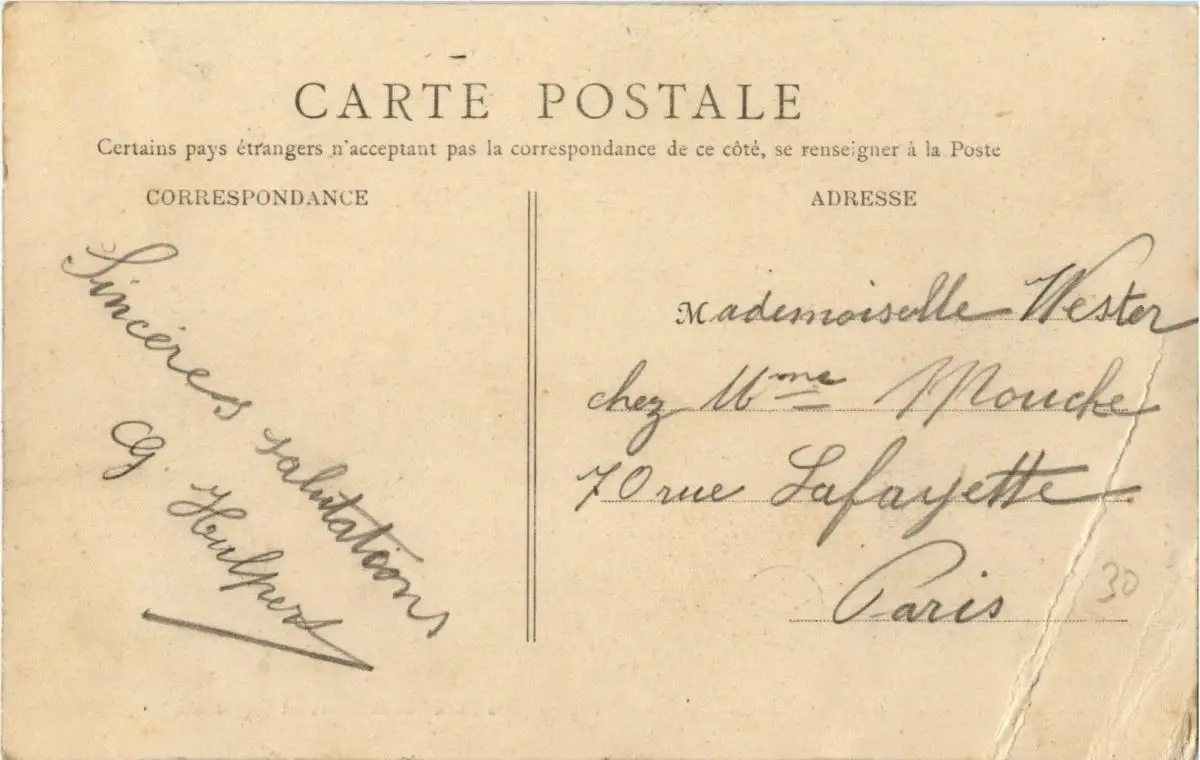 CARTE POSTALE
Certains pays étrangers n'acceptant pas la correspondance de ce côté, se renseigner à la Poste
CORRESPONDANCE
Sincères salutations
G. Hulpert
ADRESSE
Mademoiselle Wester
chez Mme Mouche
70 rue Lafayette
Paris
30